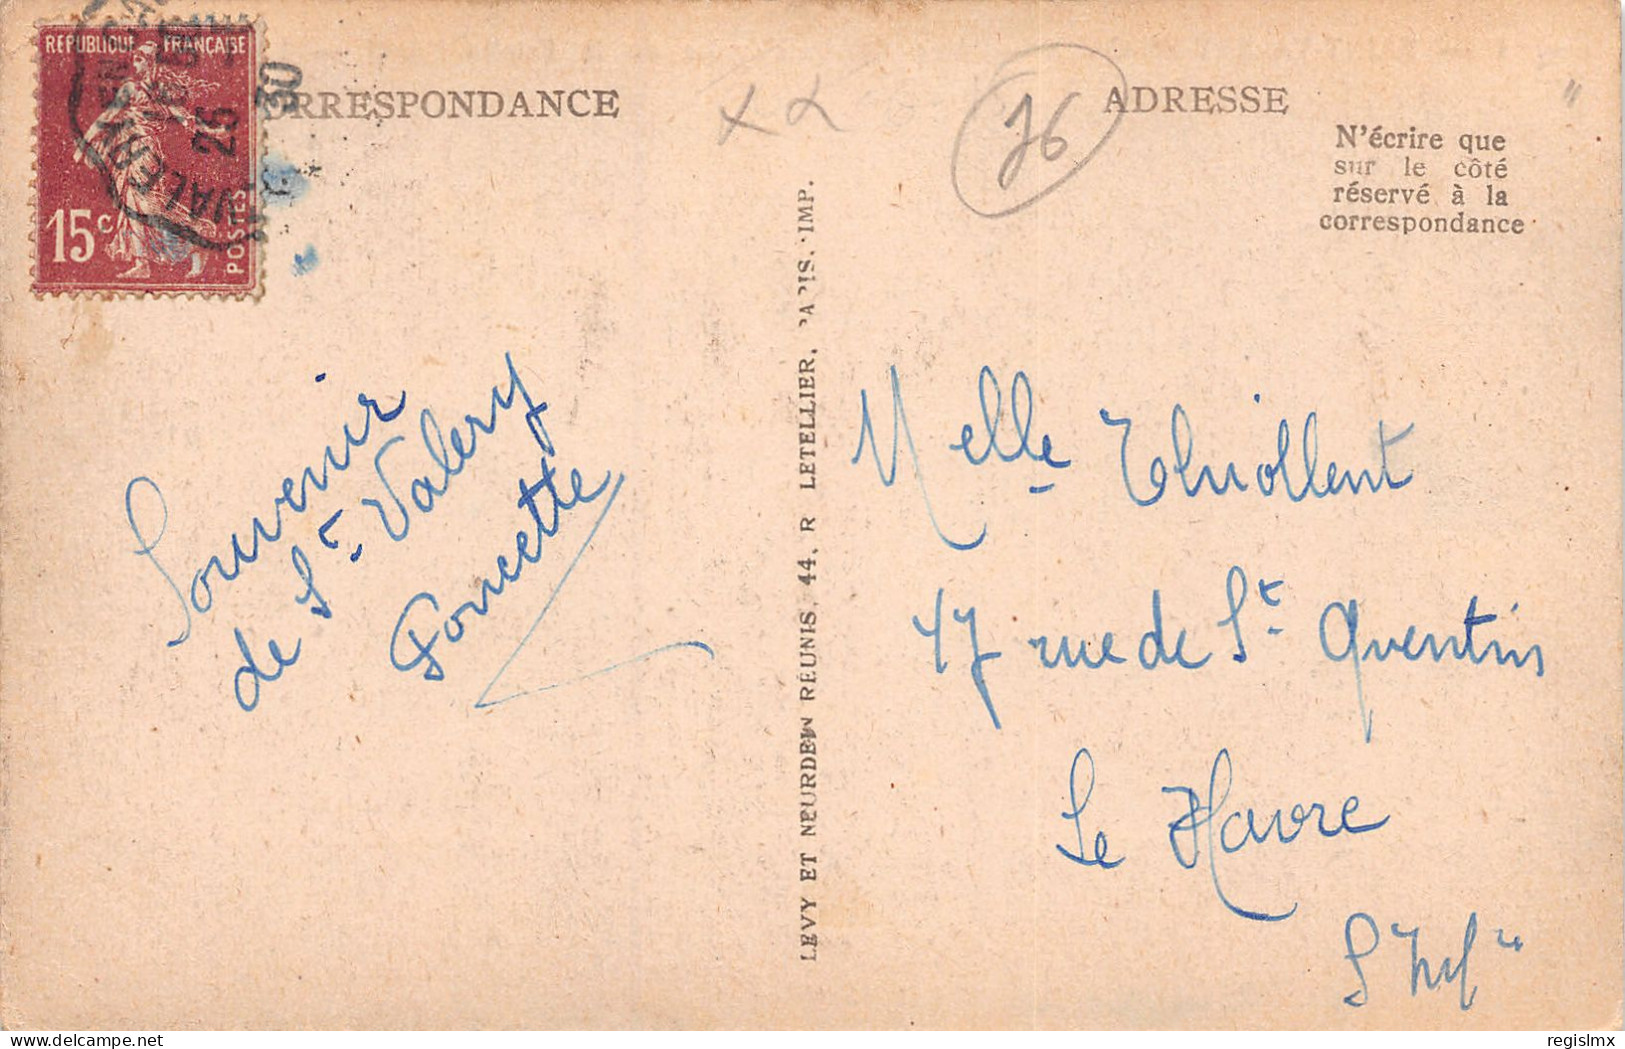 REPUBLIQUE FRANÇAISE
15 c
POSTES
25
30
CORRESPONDANCE
ADRESSE
76
N'écrire que
sur le côté
réservé à la
correspondance
LEVY ET NEURDEIN RÉUNIS, 44, R LETELLIER, PARIS. IMP.
Souvenir
de St Valery
Poucette
Melle Thiollent
47 rue de St Quentin
Le Havre
S Infre
regislmx